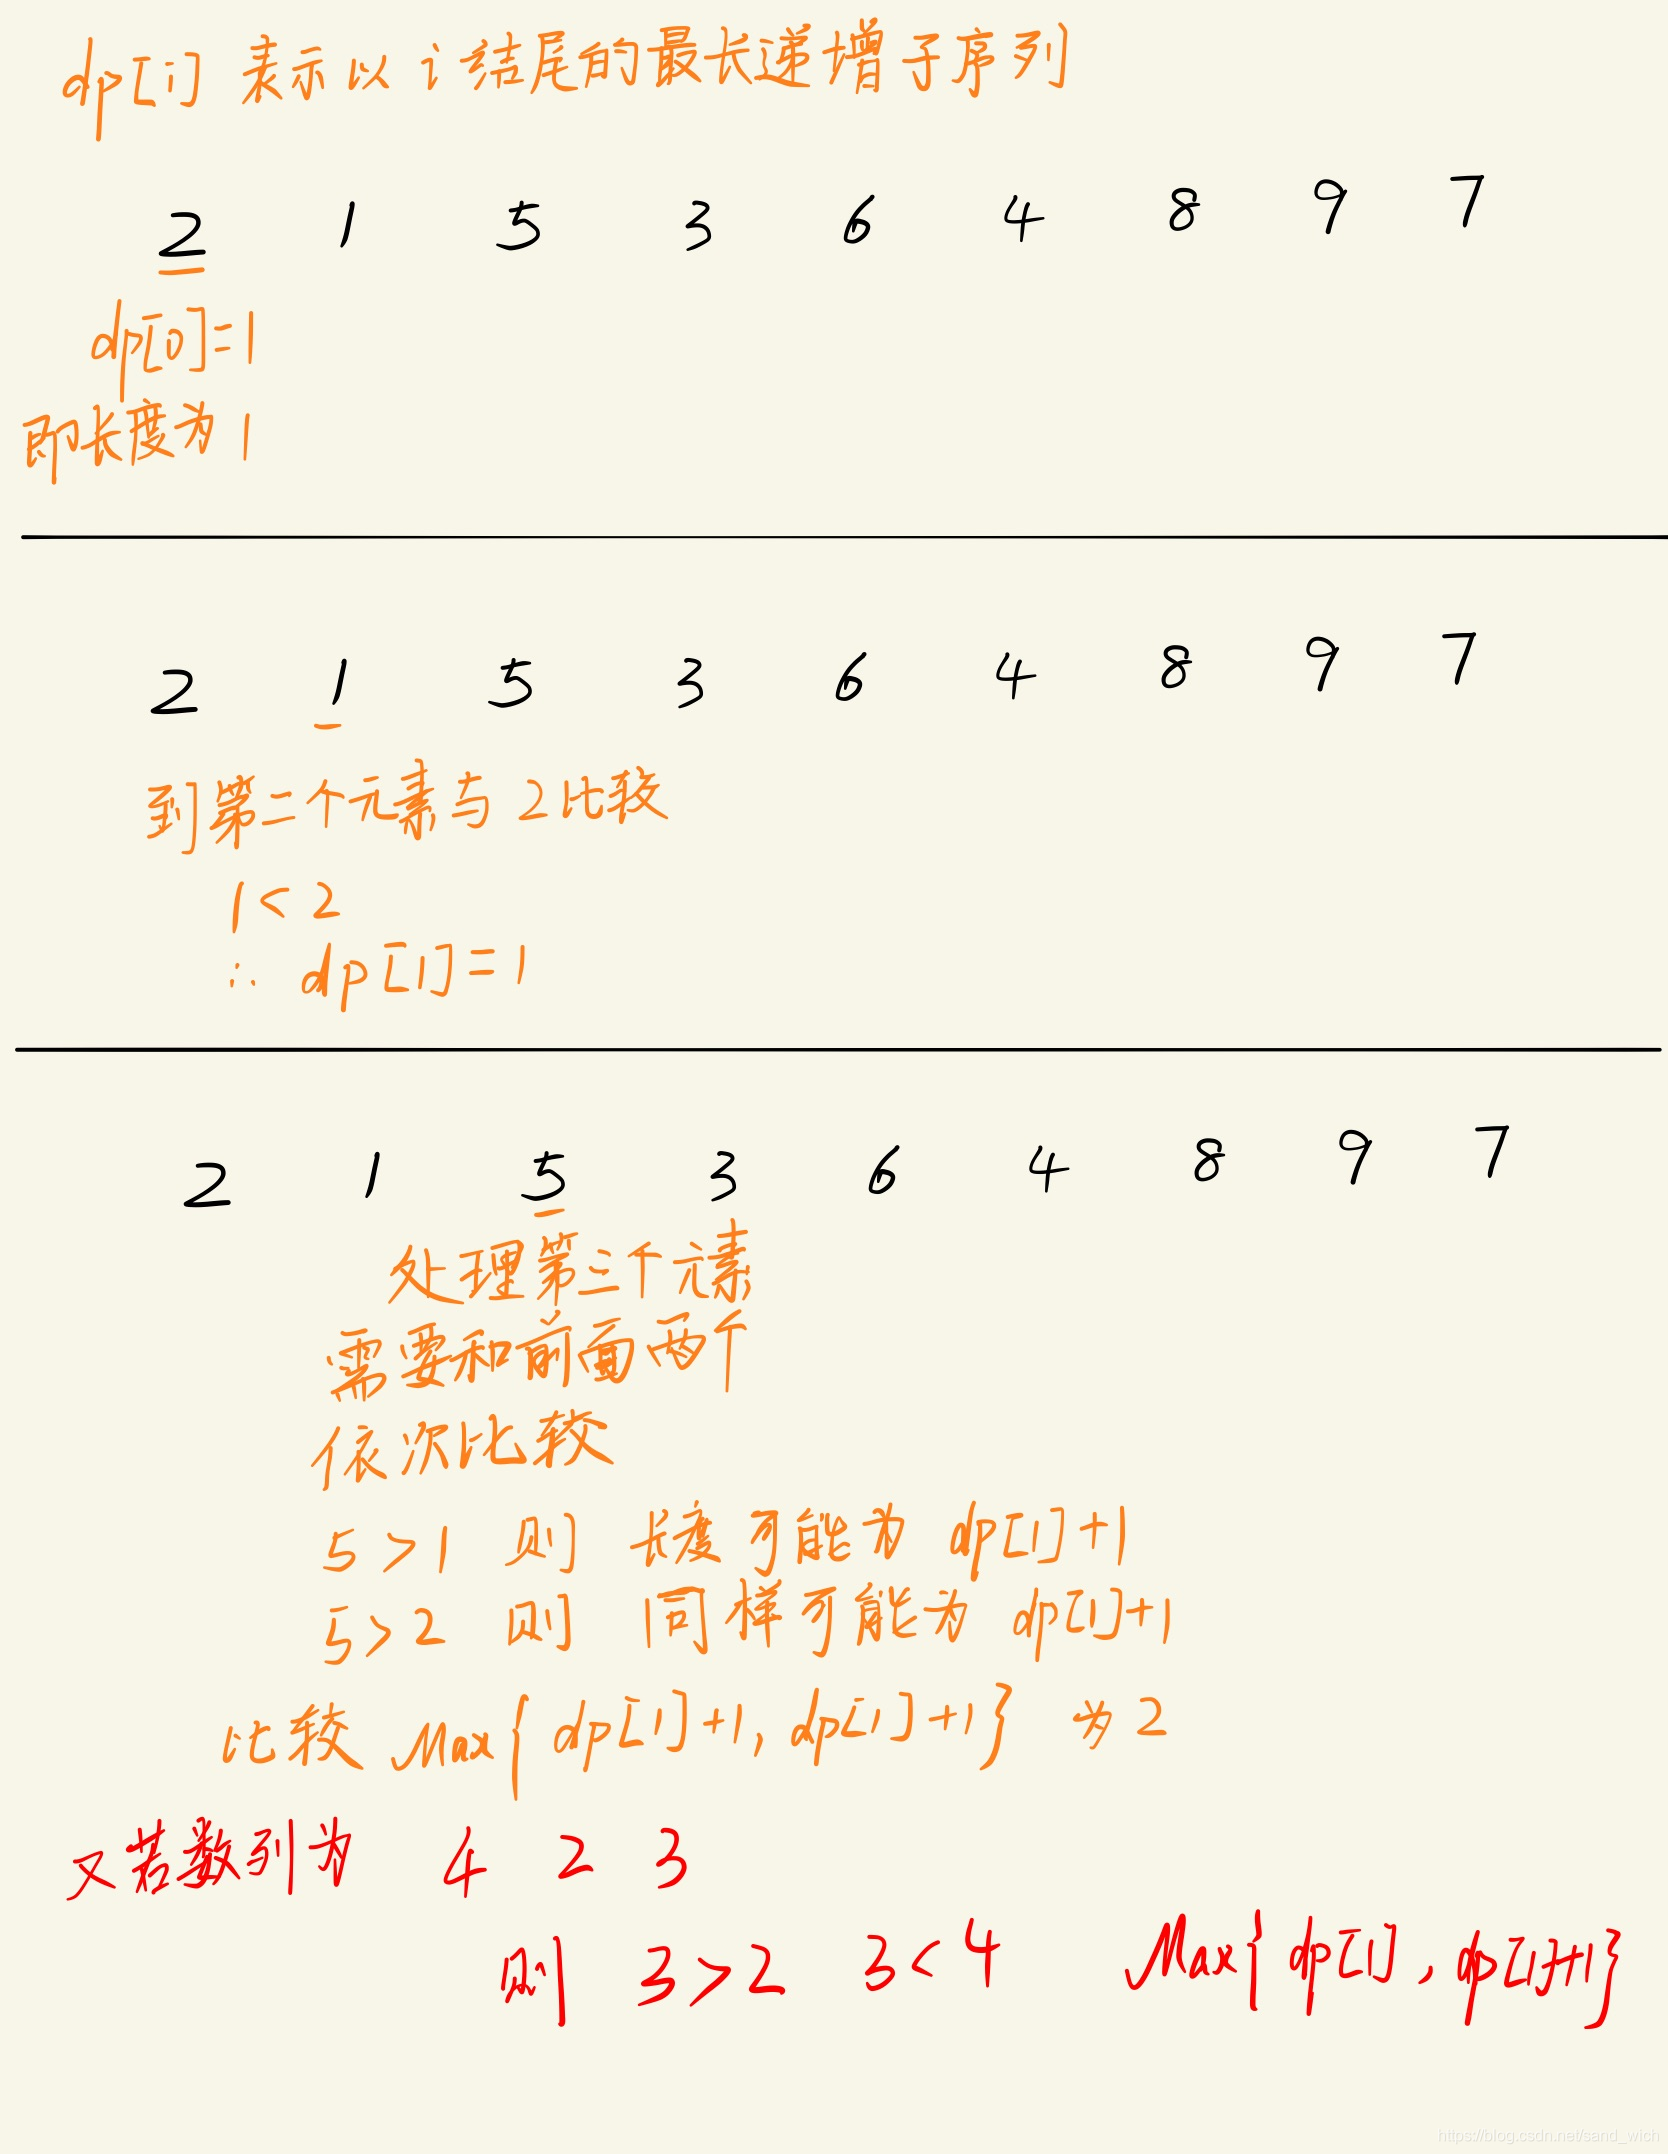 dp[i] 表示以 i 结尾的最长递增子序列
2 1 5 3 6 4 8 9 7
dp[0]=1
即长度为1
2 1 5 3 6 4 8 9 7
到第二个元素与2比较
1<2
∴ dp[1]=1
2 1 5 3 6 4 8 9 7
处理第三个元素
需要和前面两个
依次比较
5>1 则 长度可能为 dp[1]+1
5>2 则 同样可能为 dp[1]+1
比较 Max{ dp[1]+1, dp[1]+1} 为2
又若数列为 4 2 3
则 3>2 3<4 Max{ dp[1], dp[1]+1}
https://blog.csdn.net/sand_wich